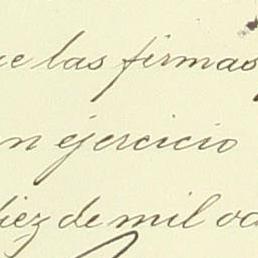 ue las firmas
n ejercicio
diez de mil oc